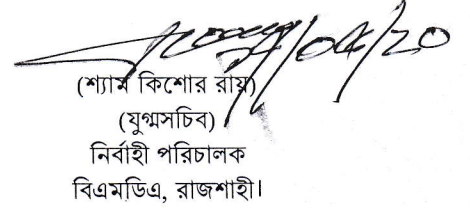 (শ্যাম কিশোর রায়)
(যুগ্মসচিব)
নির্বাহী পরিচালক
বিএমডিএ, রাজশাহী।